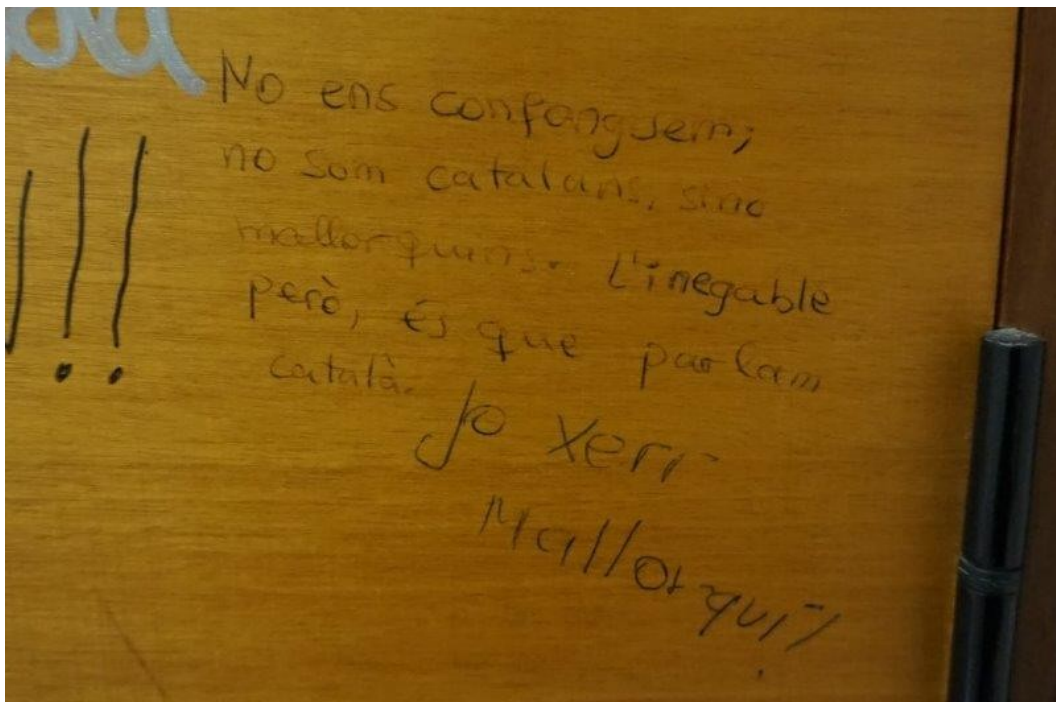 No ens confonguem;
no som catalans, sinó
mallorquins. L'inegable
però, és que parlam
català.
Jo Xerr
Mallorquí!